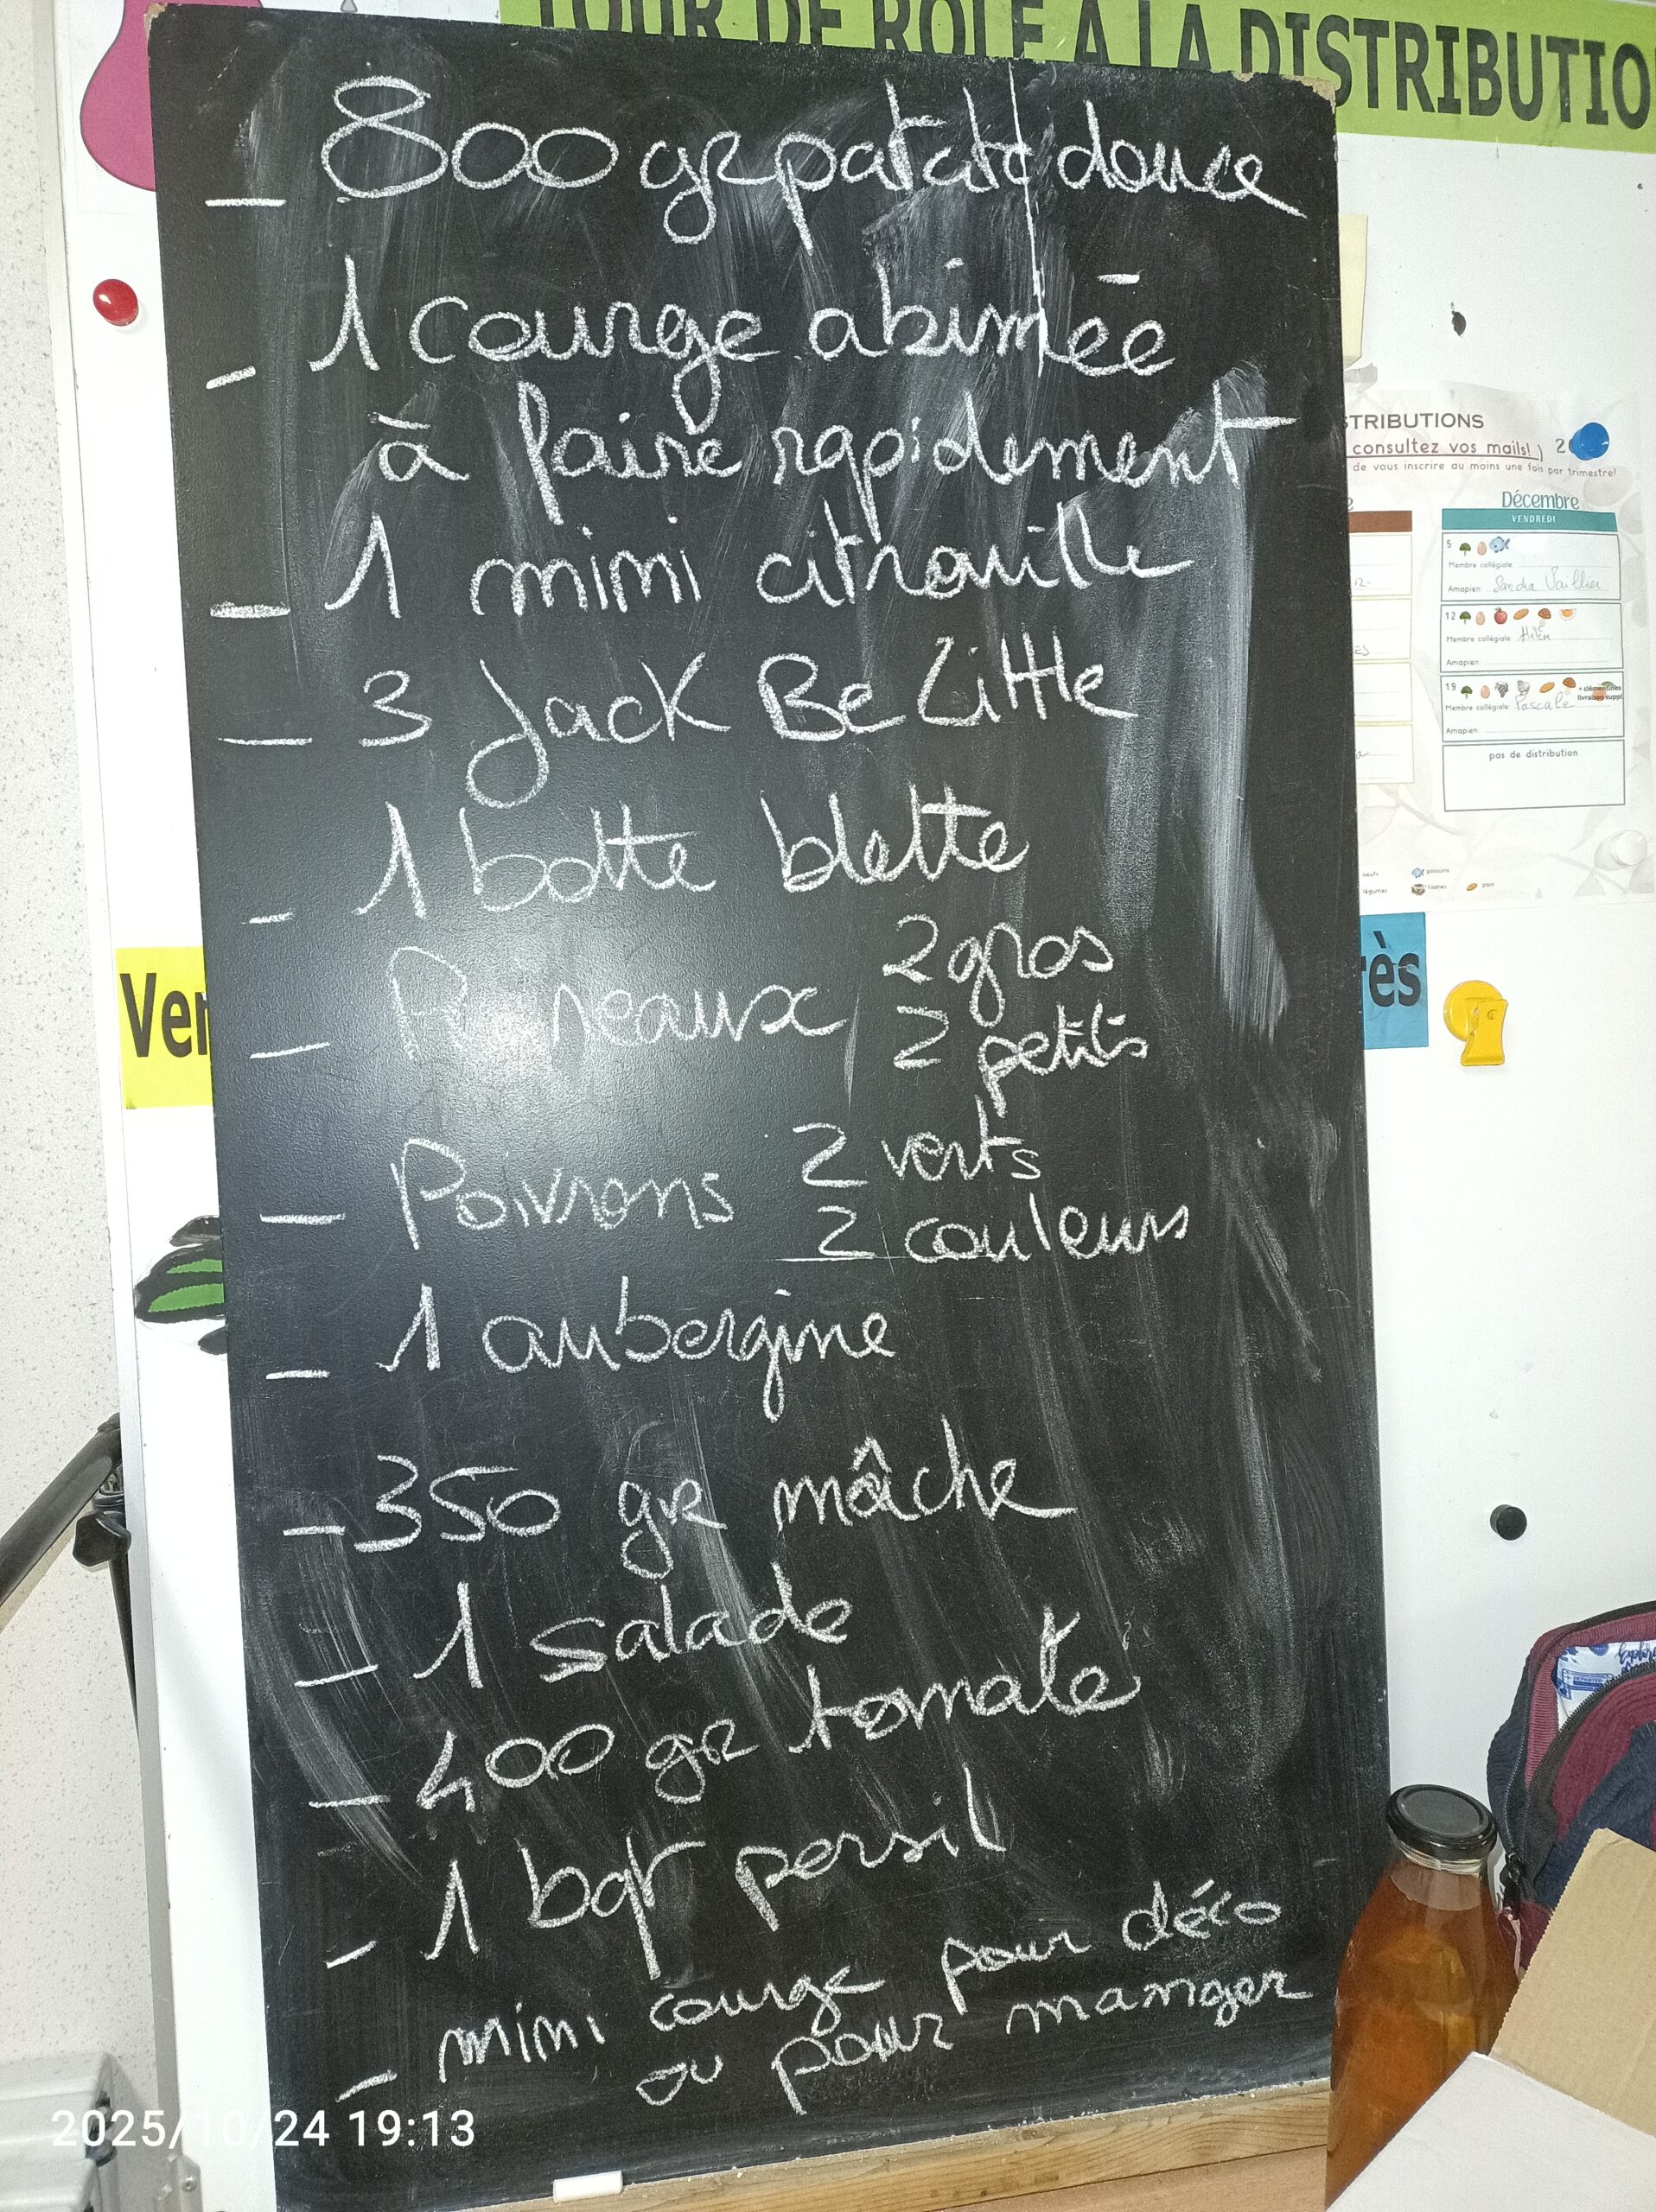 TOUR DE ROLE A LA DISTRIBUTIO
- 800 gr patate douce
- 1 courge abimée
à faire rapidement
- 1 mimi citrouille
- 3 Jack Be Little
- 1 botte blette
- neaux 2 gros
2 petits
- Poivrons 2 verts
2 couleurs
- 1 aubergine
- 350 gr mâche
- 1 salade
- 400 gr tomate
- 1 bqt persil
- mini courge pour déco
ou pour manger
STRIBUTIONS
consultez vos mails!)
de vous inscrire au moins une fois par trimestre!
Décembre
VENDREDI
5
Membre collégiale:
Amapien: Sandra
12
Membre collégiale:
Amapien:
19
+ clémentines
livraison suppl
Membre collégiale: Pascale
Amapien:
pas de distribution
oeufs
poissons
légumes
tisanes
pain
Ven
rès
2025/10/24 19:13